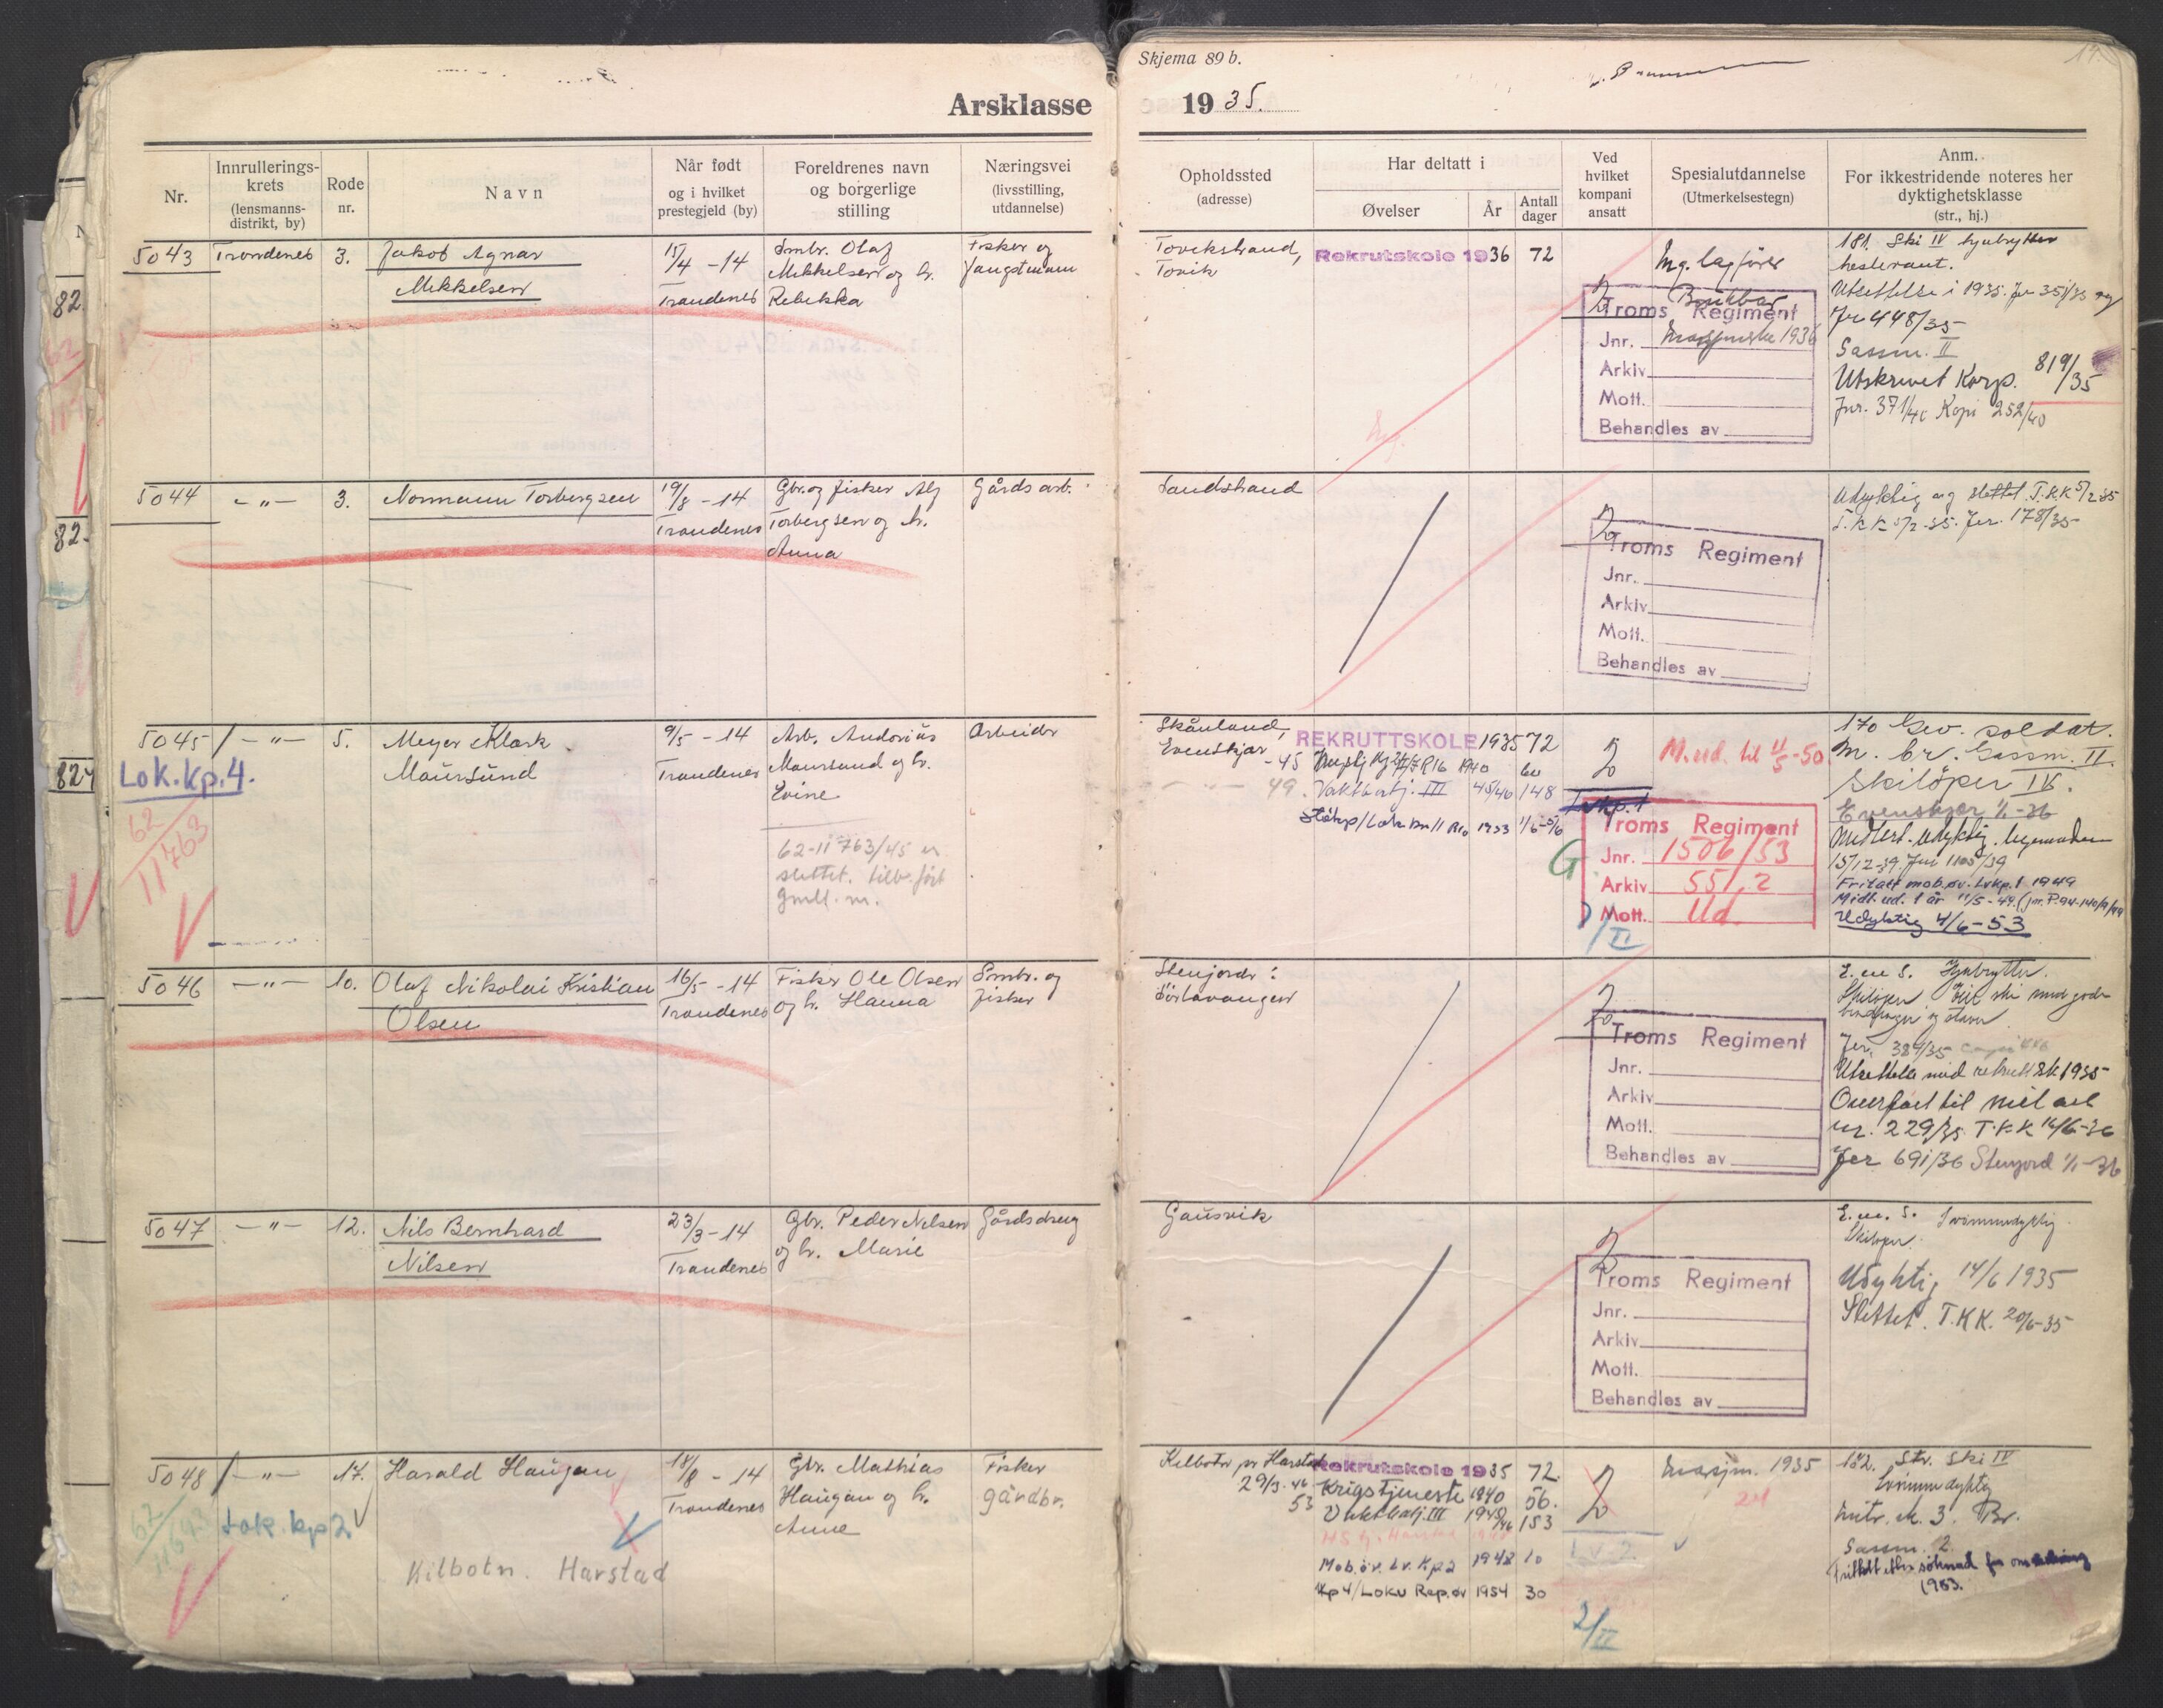 Skjema 89 b.
14.
Årsklasse 1935.
Nr.
Innrullerings-
krets
(lensmanns-
distrikt, by)
Rode
nr.
Navn
Når født
og i hvilket
prestegjeld (by)
Foreldrenes navn
og borgerlige
stilling
Næringsvei
(livsstilling,
utdannelse)
Opholdssted
(adresse)
Har deltatt i
Øvelser
År
Antall
dager
Ved
hvilket
kompani
ansatt
Spesialutdannelse
(Utmerkelsestegn)
Anm.
For ikkestridende noteres her
dyktighetsklasse
(str., hj.)
5043 Trondenes 3. Jakob Agnar
Mekkelsen
15/4 - 14
Trondenes
Smbr. Olaf
Mekkelsen og h.
Rebekka
Fisker og
fangstmann
Tovikstrand,
Tovik
Rekrutskole 1936 72
2
Mg. lagfører
Brukbar
1936
Troms Regiment
Jnr.
Arkiv
Mott.
Behandles av
181. Ski IV
Utsettelse i 1935. Jnr 351/35 og
Jnr 448/35
Gassm. II
Utskrevet Korp. 819/35
Jnr. 371/40 Kopi 252/40
5044 - " - 3. Normann Torbergsen
19/8 - 14
Trondenes
Gbr. og fisker Alf
Torbergsen og h.
Anna
Gårdsarb.
Sandstrand
2
Troms Regiment
Jnr.
Arkiv
Mott.
Behandles av
Udyktig og slettet T.K.K. 5/2-35
T.K.K. 5/2-35. Jnr. 178/35
5045 / - " - 5. Meyer Klark
Maursund
Lok.kp.4.
62
11763
9/5 - 14
Trondenes
Arb. Andorias
Maursund og h.
Evine
62-11763/45 er
slettet. tilb. ført
gml. nr.
Arbeider
Skånland,
Evenskjær - 45
- " - 49.
REKRUTTSKOLE 1935 72
1940
Vaktbatj. III 45/46 148
1953
2
G
2/II
M. ud. til 11/5-50
Troms Regiment
Jnr. 1506/53
Arkiv 551.2
Mott. Ud.
170 Gev. soldat.
M. br. Gassm. II.
Skiløper IV.
Evenskjær 1/1-36
15/12-39. Jnr 1105/39
Fritatt mob.øv. Lvkp.1 1949
Midl. ud. 1 år 11/5-49.
Udyktig 4/6-53
5046 - " - 10. Olaf Nikolai Kristian
Olsen
16/5 - 14
Trondenes
Fisker Ole Olsen
og h. Hanna
Smbr. og
fisker
Stenjorda:
Sørlavangen
2
Troms Regiment
Jnr.
Arkiv
Mott.
Behandles av
E.m S. Hjulrytter.
Skiløper
Jnr. 384/35
Utsettelse med rekruttsk. 1935
Overført til mil arb
nr. 229/35 T.K.K 16/6-36
Jnr 691/36 Stenjord 1/1-36
5047 - " - 12. Nils Bernhard
Nilsen
23/3 - 14
Trondenes
Gbr. Peder Nilsen
og h. Marie
Gårdsdreng
Gausvik
2
Troms Regiment
Jnr.
Arkiv
Mott.
Behandles av
E.m. S. Svømmedyktig
Skiløper.
Udyktig 14/6 1935
Slettet. T.K.K. 20/6-35
5048 / - " - 17. Harald Haugan
Lok.kp 2
62
11693
Kilbotn. Harstad
18/8 - 14
Trondenes
Gbr. Mathias
Haugan og h.
Anne
Fisker
gårdbr.
Kilbotn pr Harstad
29/3-46
53
Rekrutskole 1935 72.
Krigstjeneste 1940 56.
Vaktbatj. III 1945/46 153
Mob.øv. Lv. Kp 2 1948 10
Kp 4/Loku Rep.øv 1954 30
2
Lv 2.
2/II
1935
24
182. Str. Ski IV
Svømmedyktig
Mitr. M. 3. Br.
Gassm. 2.
1953.